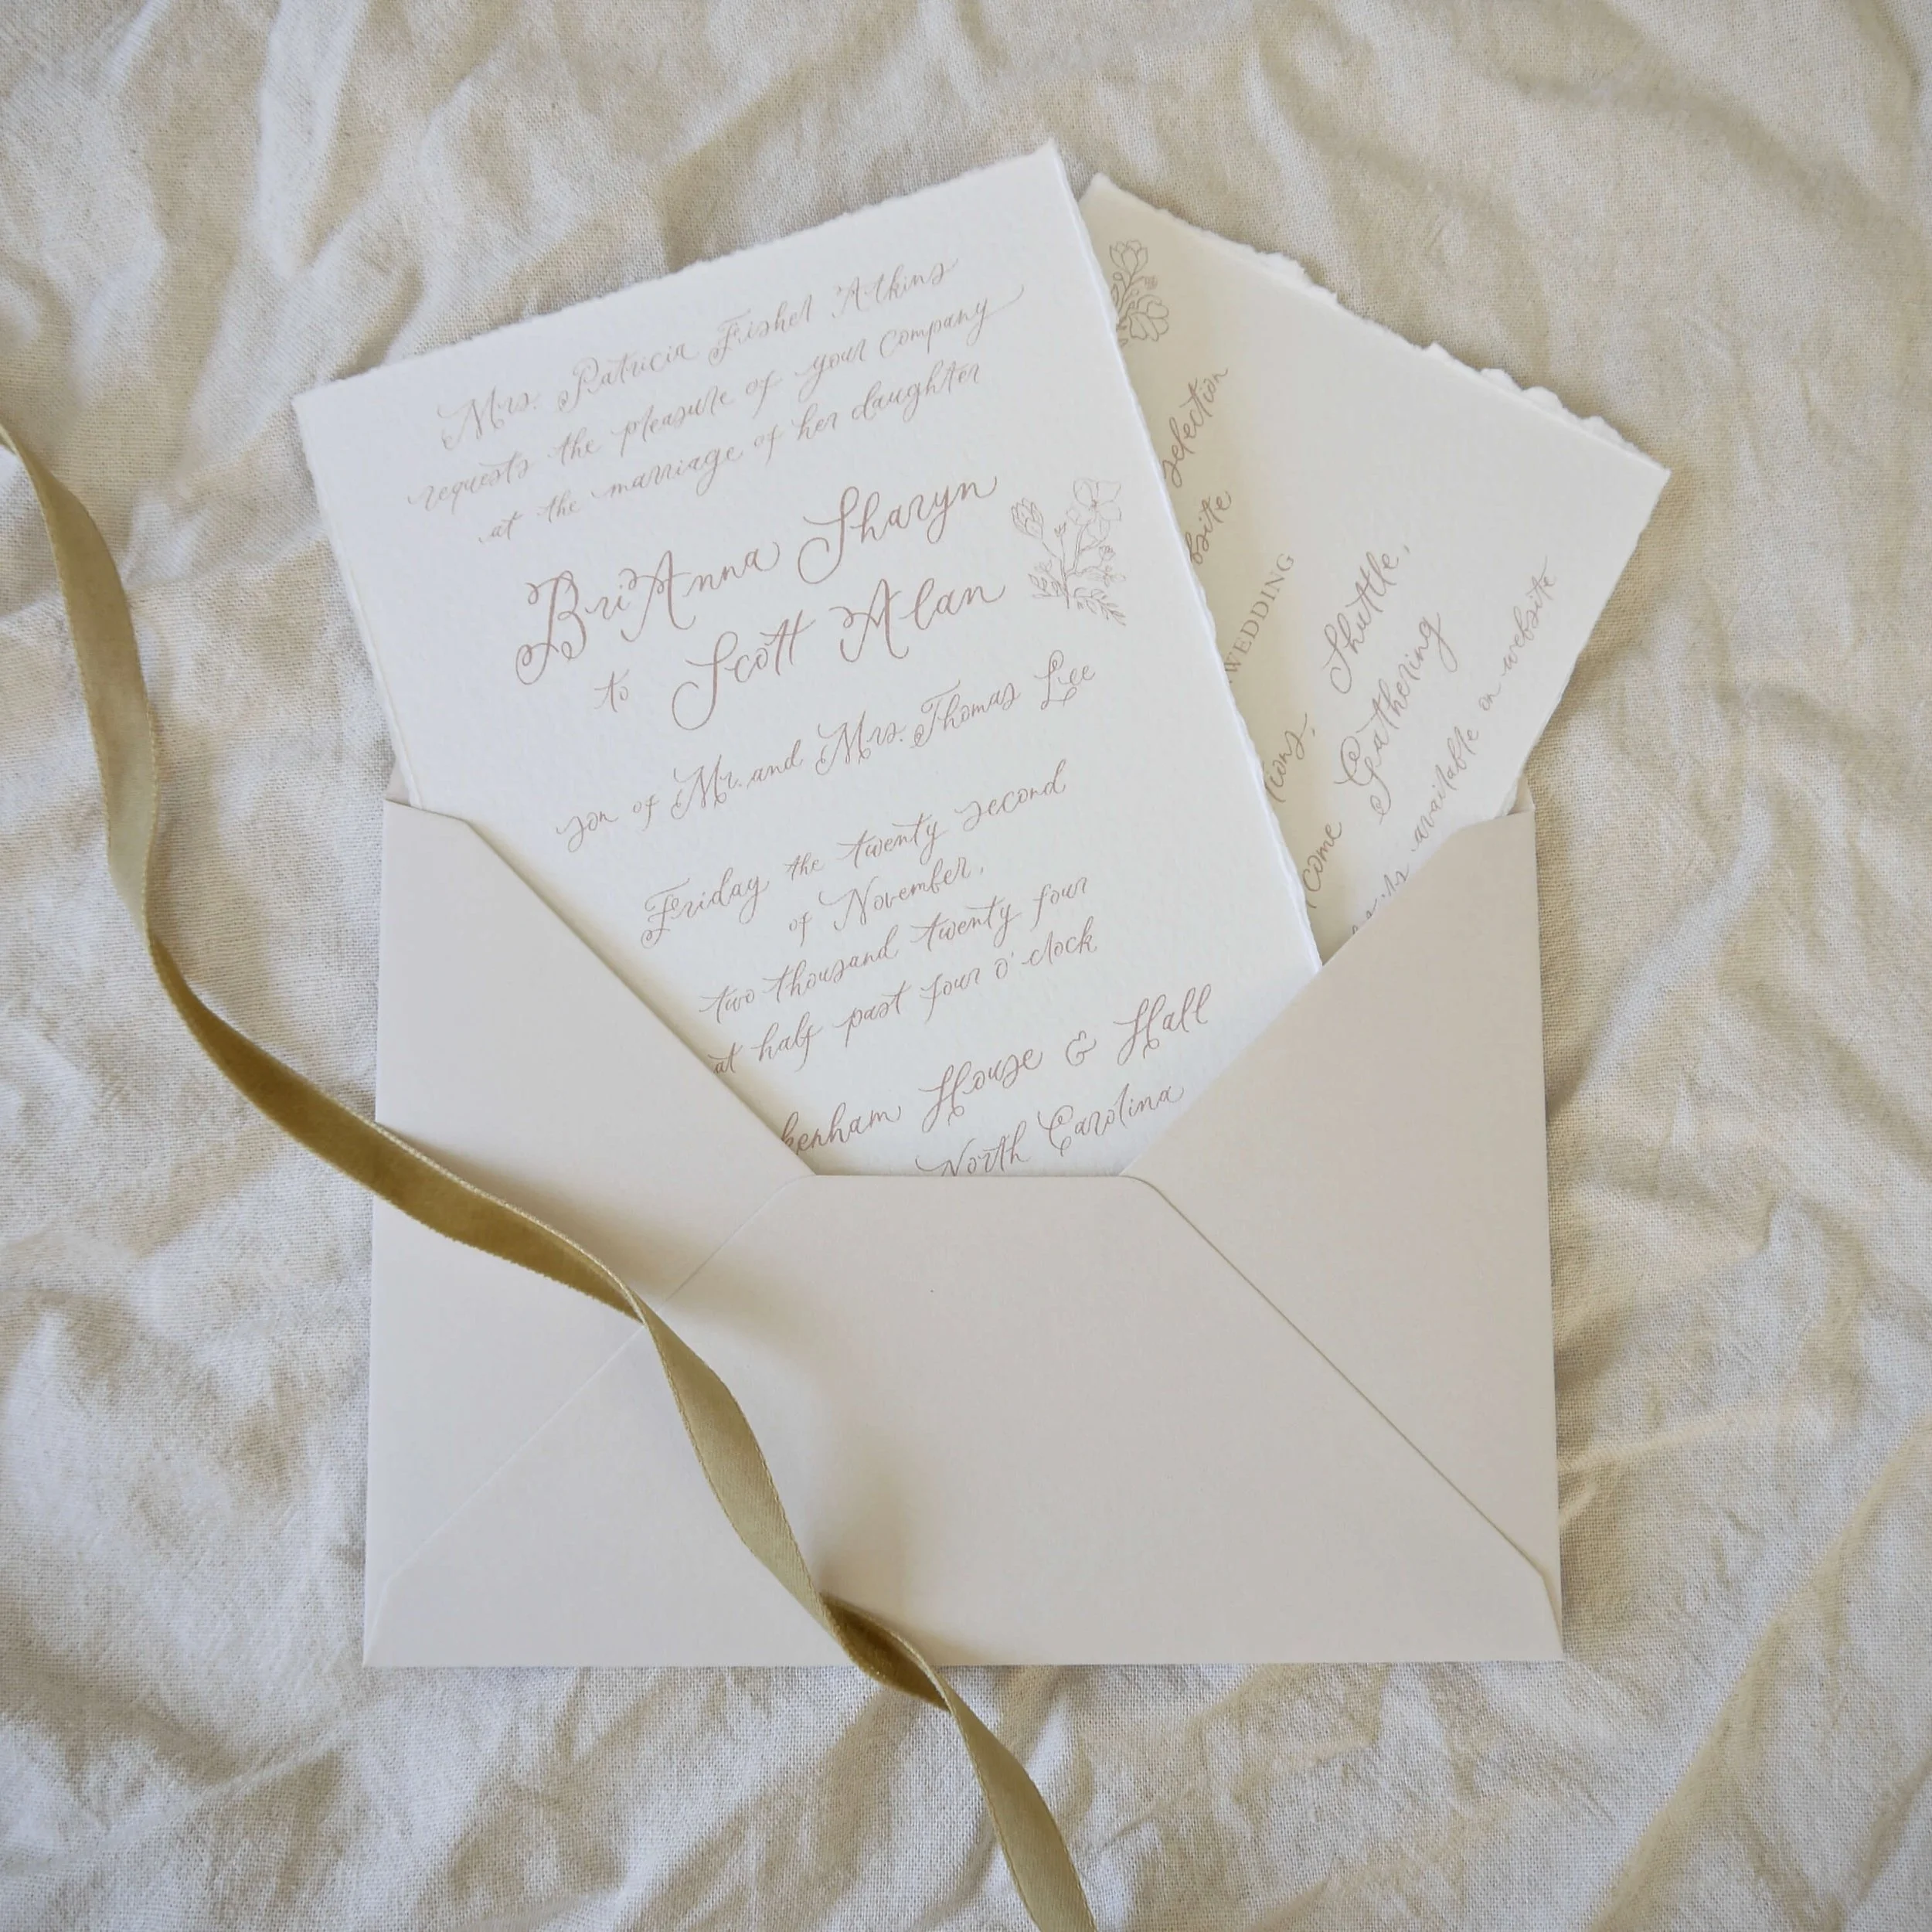 Mrs. Patricia Fisher Atkins
requests the pleasure of your company
at the marriage of her daughter
BriAnna Sharyn
to Scott Alan
son of Mr. and Mrs. Thomas Lee
Friday the twenty second
of November,
two thousand twenty four
at half past four o'clock
House & Hall
North Carolina
selection
WEDDING
Shuttle,
Gathering
available on website